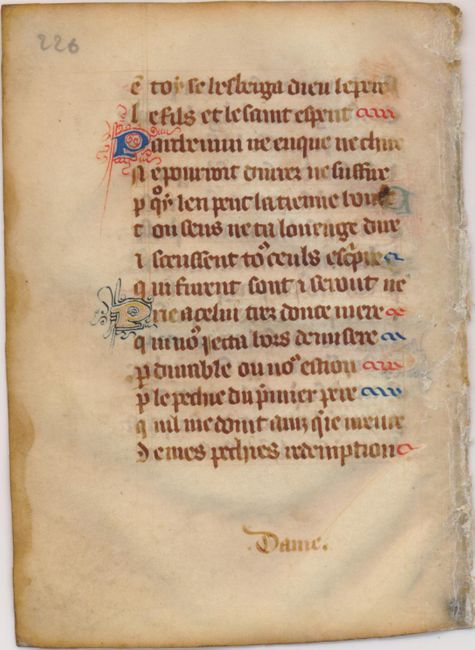 226
e toy se lesberga dieu le pere
l e fils et le saint esperit
Parlemin ne enque ne chi
N e pourroit durer ne suffire
p qͦy len peut la tienne bon
t ou sens ne ta louenge dire
i sceussent toꝰ ceuls esc̃pre
q ui furent sont i seront ne
Prie a celui tres douce mere
q ui noꝰ jecta hors de misere
ꝑ diuable ou noꝰ estion
ꝑ le peche du p̃mier pere
q uil me doint auz q̃ ie meure
De mes pechies redemption
Dame.